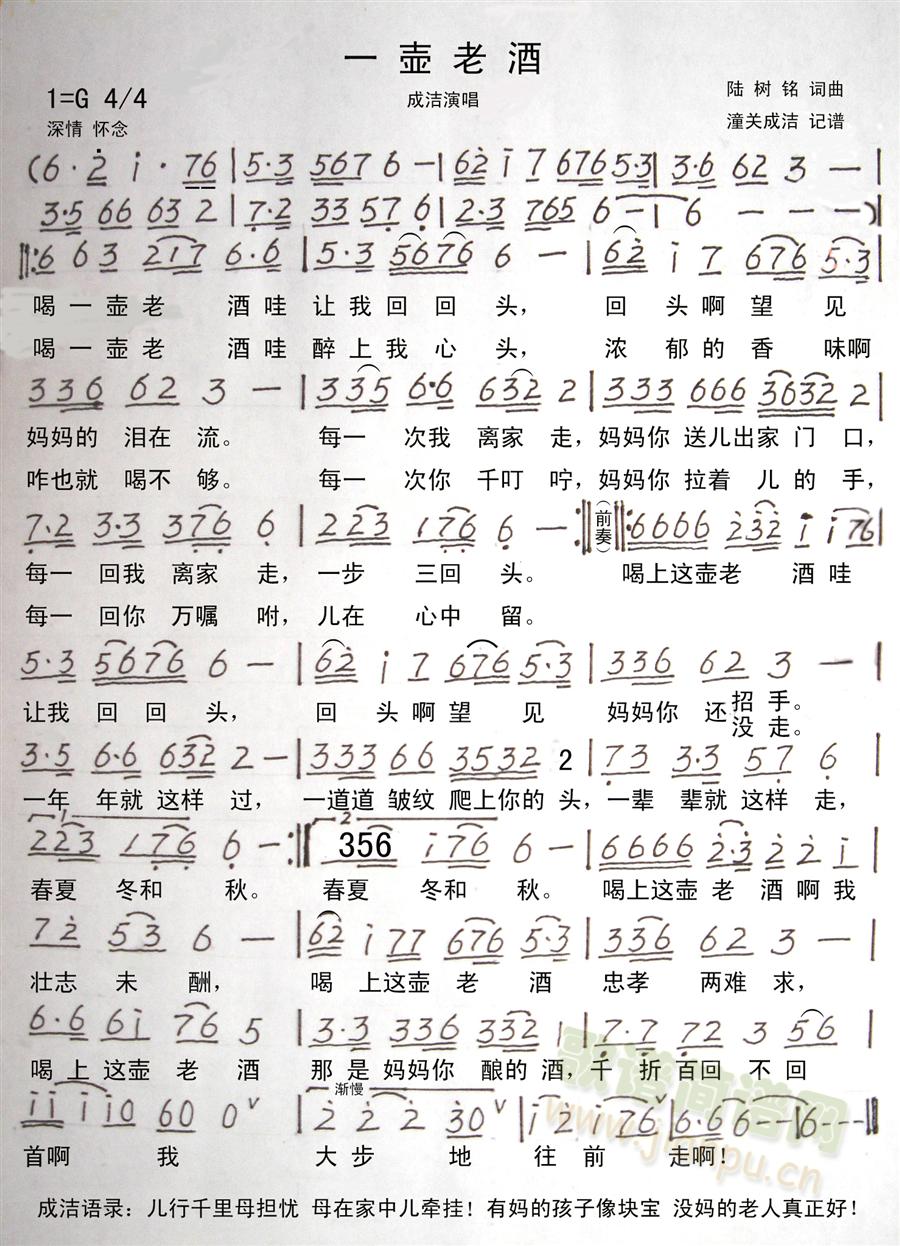 一 壶 老 酒
1=G 4/4
成洁演唱
陆 树 铭 词曲
深情 怀念
潼关成洁 记谱
(6·2 i·76|5·3 5676 6—|62 i7 6765·3|3·6 62 3 —|
3·5 66 63 2|7·2 33 57 6|2·3 765 6—|6 — — —)|
‖:6 63 217 6·6|5·3 5676 6 —|62 i7 676 5·3|
喝一壶老 酒哇 让我回回头， 回头啊望见
喝一壶老 酒哇 醉上我心头， 浓郁的香 味啊
336 62 3 —|335 6·6 632 2|333 666 3632 2|
妈妈的 泪在 流。 每一 次我 离家 走，妈妈你 送儿出家 门 口，
咋也就 喝不 够。 每一 次你 千叮 咛，妈妈你 拉着 儿 的 手，
7·2 3·3 376 6|223 176 6 —:‖(前奏)‖:6666 232 i i76|
每一 回我 离家 走，一步 三回 头。 喝上这壶老 酒哇
每一 回你 万嘱 咐，儿在 心中 留。
5·3 5676 6 —|62 i7 676 5·3|336 62 3 —|
让我 回回头， 回 头啊望 见 妈妈你 还招 手。
没 走。
3·5 6·6 632 2—|333 66 3532 2|73 3·3 57 6|
一年 年就 这样 过，一道道 皱纹 爬上你的 头，一辈 辈就 这样 走，
1 2
223 176 6—:‖356 i76 6—|6666 2·3 22 i|
春夏 冬和 秋。 春夏 冬和 秋。 喝上这壶 老 酒啊我
72 53 6 —|62 i77 676 5·3|336 62 3 —|
壮志 未 酬， 喝 上这壶 老 酒 忠孝 两难 求，
6·6 6i 76 5|3·3 336 332 1|7·7 72 3 56
喝上 这壶 老 酒 那是妈妈你 酿的酒，千 折百回 不回
渐慢
ii ii0 60 0∨|2 2 2 30∨|i2 i76∨|6·6 6—|6—‖
首啊 我 大步 地 往前 走啊！
歌谱简谱网
www.jianpu.cn
成洁语录：儿行千里母担忧 母在家中儿牵挂！有妈的孩子像块宝 没妈的老人真正好！